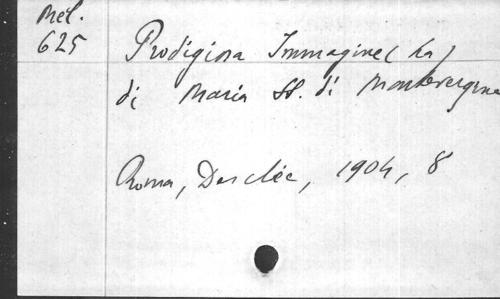 Mel.
625
Prodigiosa Immagine (La)
di Maria SS. di Montevergine
Roma, Desclée, 1904, 8